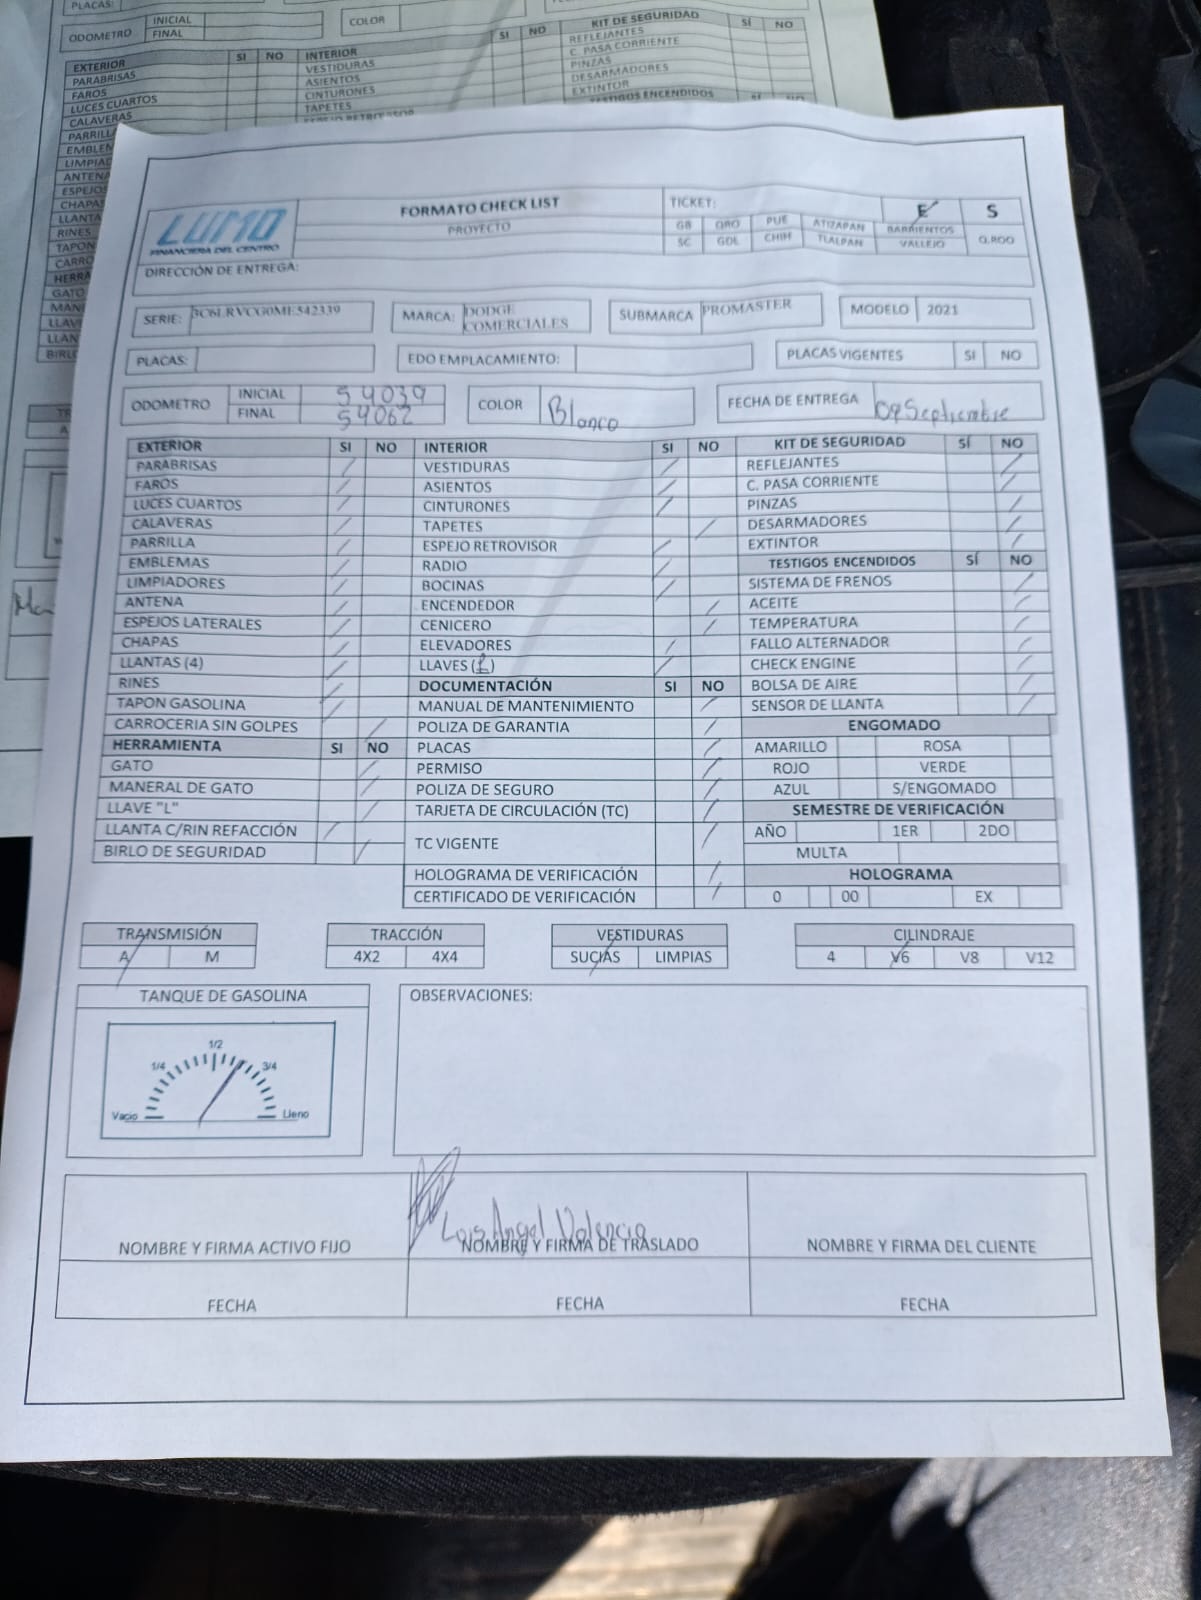 PLACAS:
ODOMETRO INICIAL COLOR
FINAL
EXTERIOR SI NO INTERIOR SI NO KIT DE SEGURIDAD SÍ NO
PARABRISAS VESTIDURAS REFLEJANTES
FAROS ASIENTOS C. PASA CORRIENTE
LUCES CUARTOS CINTURONES PINZAS
CALAVERAS TAPETES DESARMADORES
EXTINTOR
TESTIGOS ENCENDIDOS
LUMO
FINANCIERA DEL CENTRO
FORMATO CHECK LIST
PROYECTO
TICKET: E S
GB QRO PUE ATIZAPAN BARRIENTOS Q.ROO
SC GDL CHIH TLALPAN VALLEJO
DIRECCIÓN DE ENTREGA:
SERIE: 3C6LRVCG0ME542339 MARCA: DODGE COMERCIALES SUBMARCA PROMASTER MODELO 2021
PLACAS: EDO EMPLACAMIENTO: PLACAS VIGENTES SI NO
ODOMETRO INICIAL 54039 COLOR Blanco FECHA DE ENTREGA 09 Septiembre
FINAL 54062
EXTERIOR SI NO INTERIOR SI NO KIT DE SEGURIDAD SÍ NO
PARABRISAS VESTIDURAS REFLEJANTES
FAROS ASIENTOS C. PASA CORRIENTE
LUCES CUARTOS CINTURONES PINZAS
CALAVERAS TAPETES DESARMADORES
PARRILLA ESPEJO RETROVISOR EXTINTOR
EMBLEMAS RADIO TESTIGOS ENCENDIDOS SÍ NO
LIMPIADORES BOCINAS SISTEMA DE FRENOS
ANTENA ENCENDEDOR ACEITE
ESPEJOS LATERALES CENICERO TEMPERATURA
CHAPAS ELEVADORES FALLO ALTERNADOR
LLANTAS (4) LLAVES (1) CHECK ENGINE
RINES DOCUMENTACIÓN SI NO BOLSA DE AIRE
TAPON GASOLINA MANUAL DE MANTENIMIENTO SENSOR DE LLANTA
CARROCERIA SIN GOLPES POLIZA DE GARANTIA ENGOMADO
HERRAMIENTA SI NO PLACAS AMARILLO ROSA
GATO PERMISO ROJO VERDE
MANERAL DE GATO POLIZA DE SEGURO AZUL S/ENGOMADO
LLAVE "L" TARJETA DE CIRCULACIÓN (TC) SEMESTRE DE VERIFICACIÓN
LLANTA C/RIN REFACCIÓN TC VIGENTE AÑO 1ER 2DO
BIRLO DE SEGURIDAD MULTA
HOLOGRAMA DE VERIFICACIÓN HOLOGRAMA
CERTIFICADO DE VERIFICACIÓN 0 00 EX
TRANSMISIÓN TRACCIÓN VESTIDURAS CILINDRAJE
A M 4X2 4X4 SUCIAS LIMPIAS 4 V6 V8 V12
TANQUE DE GASOLINA OBSERVACIONES:
1/2
1/4 3/4
Vacio Lleno
Luis Angel Valencia
NOMBRE Y FIRMA ACTIVO FIJO NOMBRE Y FIRMA DE TRASLADO NOMBRE Y FIRMA DEL CLIENTE
FECHA FECHA FECHA